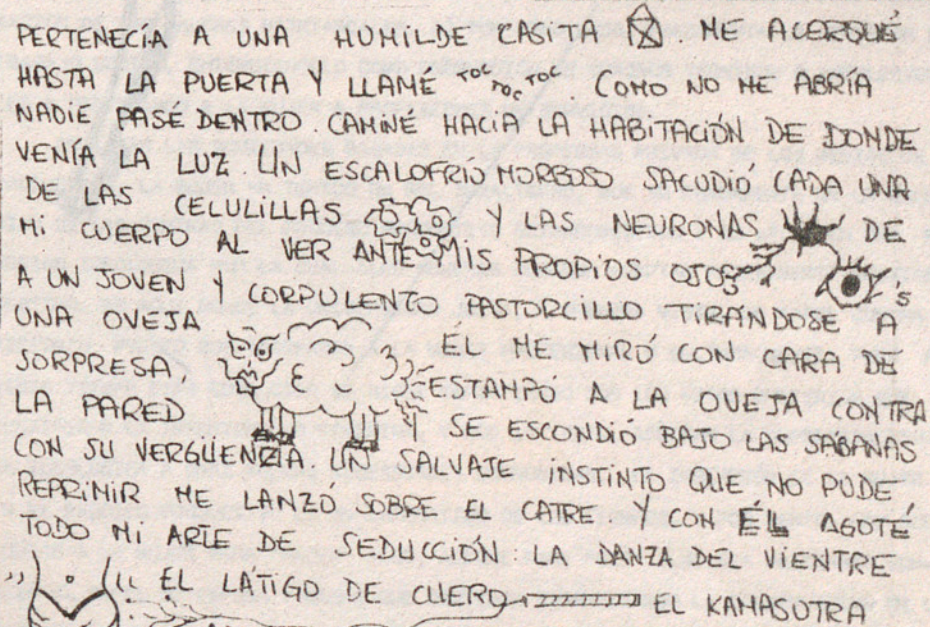 PERTENECÍA A UNA HUMILDE CASITA. ME ACERQUÉ
HASTA LA PUERTA Y LLAMÉ TOC TOC TOC. COMO NO ME ABRÍA
NADIE PASÉ DENTRO. CAMINÉ HACIA LA HABITACIÓN DE DONDE
VENÍA LA LUZ. UN ESCALOFRÍO MORBOSO SACUDIÓ CADA UNA
DE LAS CELULILLAS Y LAS NEURONAS DE
MI CUERPO AL VER ANTE MIS PROPIOS OJOS 's
A UN JOVEN Y CORPULENTO PASTORCILLO TIRÁNDOSE A
UNA OVEJA ÉL ME MIRÓ CON CARA DE
SORPRESA ESTAMPÓ A LA OVEJA CONTRA
LA PARED Y SE ESCONDIÓ BAJO LAS SÁBANAS
CON SU VERGÜENZA UN SALVAJE INSTINTO QUE NO PUDE
REPRIMIR ME LANZÓ SOBRE EL CATRE Y CON ÉL AGOTÉ
TODO MI ARTE DE SEDUCCIÓN LA DANZA DEL VIENTRE
EL LÁTIGO DE CUERO EL KAMASUTRA